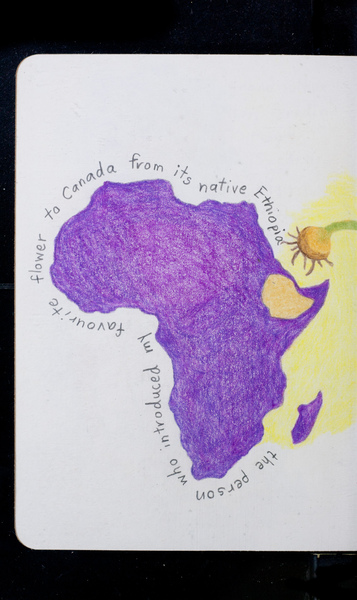 the person who introduced my favourite flower to Canada from its native Ethiopia